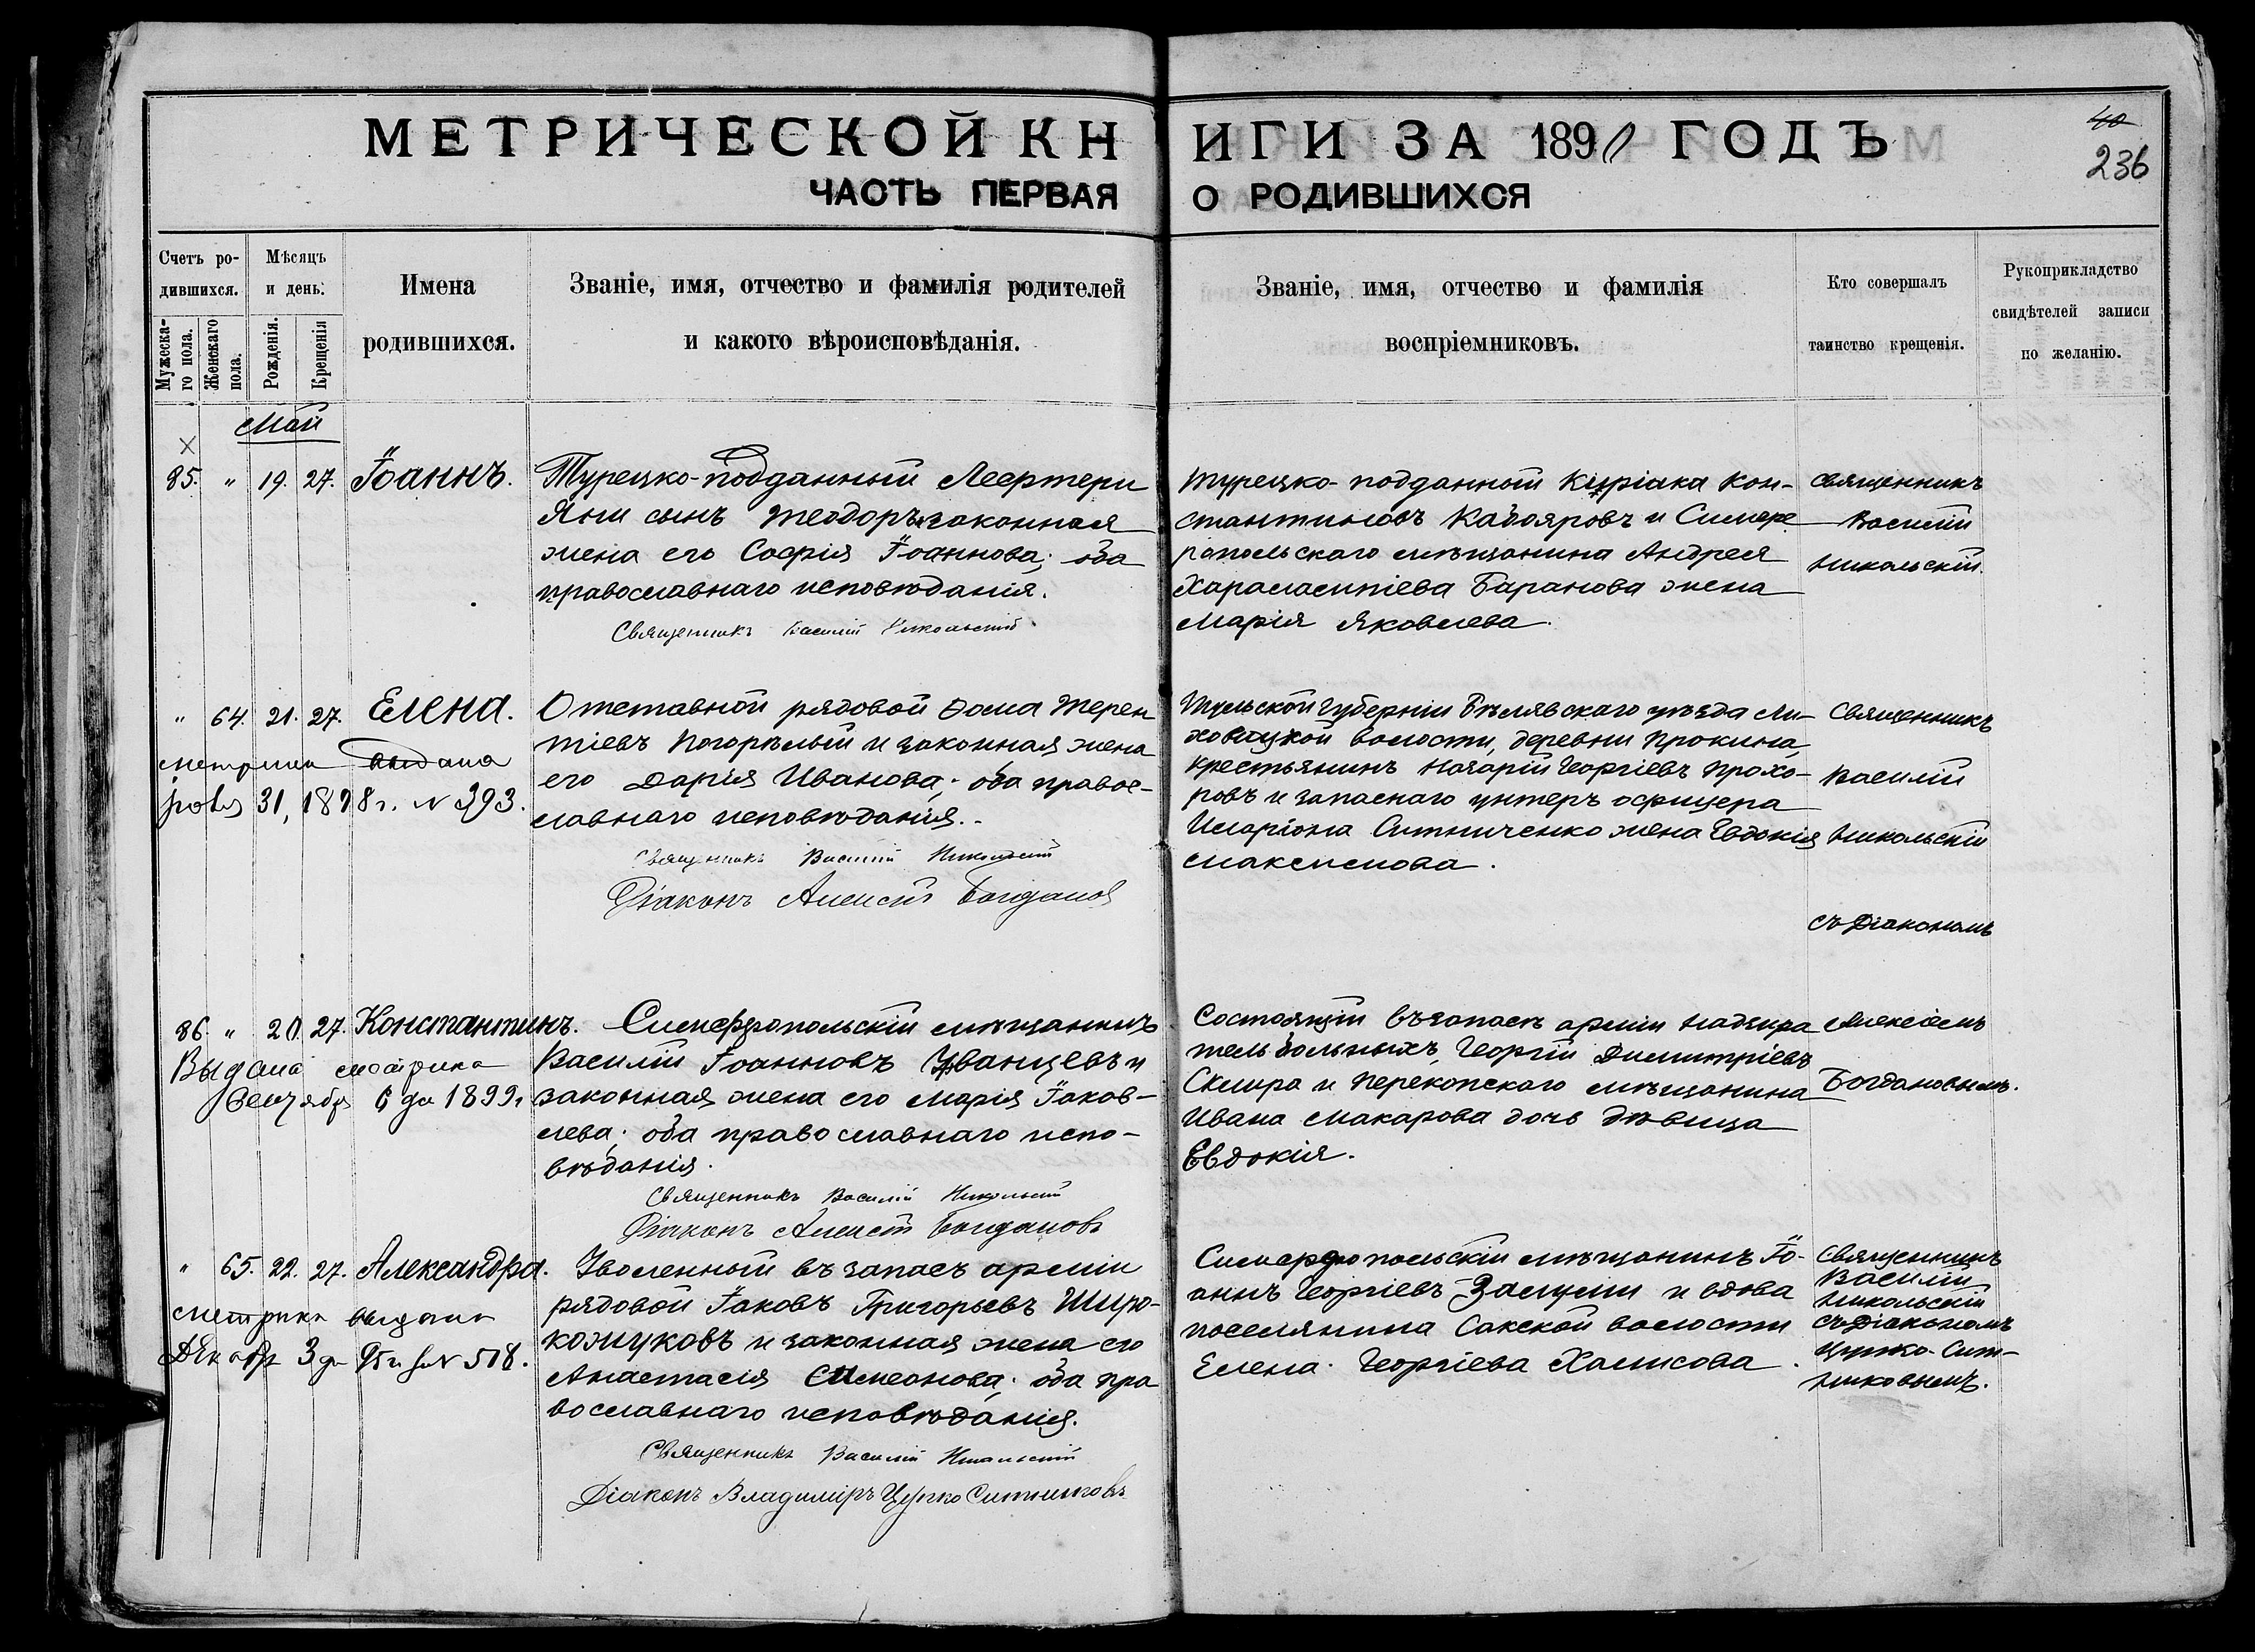 МЕТРИЧЕСКОЙ КНИГИ ЗА 1890 ГОДЪ
40
236
ЧАСТЬ ПЕРВАЯ О РОДИВШИХСЯ
Счетъ ро-
дившихся.
Мужеска-
го пола.
Женскаго
пола.
Мѣсяцъ
и день.
Рожденія.
Крещенія
Имена
родившихся.
Званіе, имя, отчество и фамилія родителей
и какого вѣроисповѣданія.
Званіе, имя, отчество и фамилія
воспріемниковъ.
Кто совершалъ
таинство крещенія.
Рукоприкладство
свидѣтелей записи
по желанію.
Май
85. " 19. 27. Іоаннъ.
Турецко-подданный Лефтери
Яни сынъ Теодоръ и законная
жена его Софія Іоаннова; оба
православнаго исповѣданія.
Священникъ Василій Никольскій
Турецко-подданный Киріака Кон-
стантиновъ Кабояровъ и Симфе
ропольскаго мѣщанина Андрея
Харалампіева Баранова жена
Марія Яковлева.
Священникъ
Василій
Никольскій.
" 64. 21. 27. Елена.
метрика выдана
31, 1898 г. № 393.
Отставной рядовой Ѳома Терен
тіевъ Погорѣлый и законная жена
его Дарія Иванова; оба правос-
лавнаго исповѣданія.
Священникъ Василій Никольскій
Діаконъ Алексій Богдановъ
Тульской губерніи Бѣлявскаго уѣзда Ли-
волости, деревни Прокина,
крестьянинъ Назарій Георгіевъ Прохо-
ровъ и запаснаго унтеръ офицера
Иларіона Ситниченко жена Евдокія
Максимова.
Священникъ
Василій
Никольскій
съ Діакономъ
86. " 20. 27. Константинъ.
Выдана метрика
6 дн 1899 г
Симферопольскій мѣщанинъ
Василій Іоанновъ Уванцевъ и
законная жена его Марія Іаков-
лева; оба православнаго испо-
вѣданія.
Священникъ Василій Никольскій
Діаконъ Алексій Богдановъ
Состоящій въ запасѣ арміи надзира
тель больныхъ, Георгій Димитріевъ
Скмира и Перекопскаго мѣщанина
Ивана Макарова дочь дѣвица
Евдокія.
Алексіемъ
Богдановымъ.
" 65. 22. 27. Александра.
метрика выдана
Декабр 3 дн 95 г за № 518.
Уволенный въ запасъ арміи
рядовой Іаковъ Григорьевъ Широ-
кожуковъ и законная жена его
Анастасія Симеонова; оба пра
вославнаго исповѣданія.
Священникъ Василій Никольскій
Діаконъ Владиміръ Цурко Ситниковъ
Симферопольскій мѣщанинъ Іо-
аннъ Георгіевъ и вдова
поселянина Сакской волости
Елена Георгіева Халисова.
Священникъ
Василій
Никольскій
съ Діакономъ
Цурко-Сит-
никовымъ.